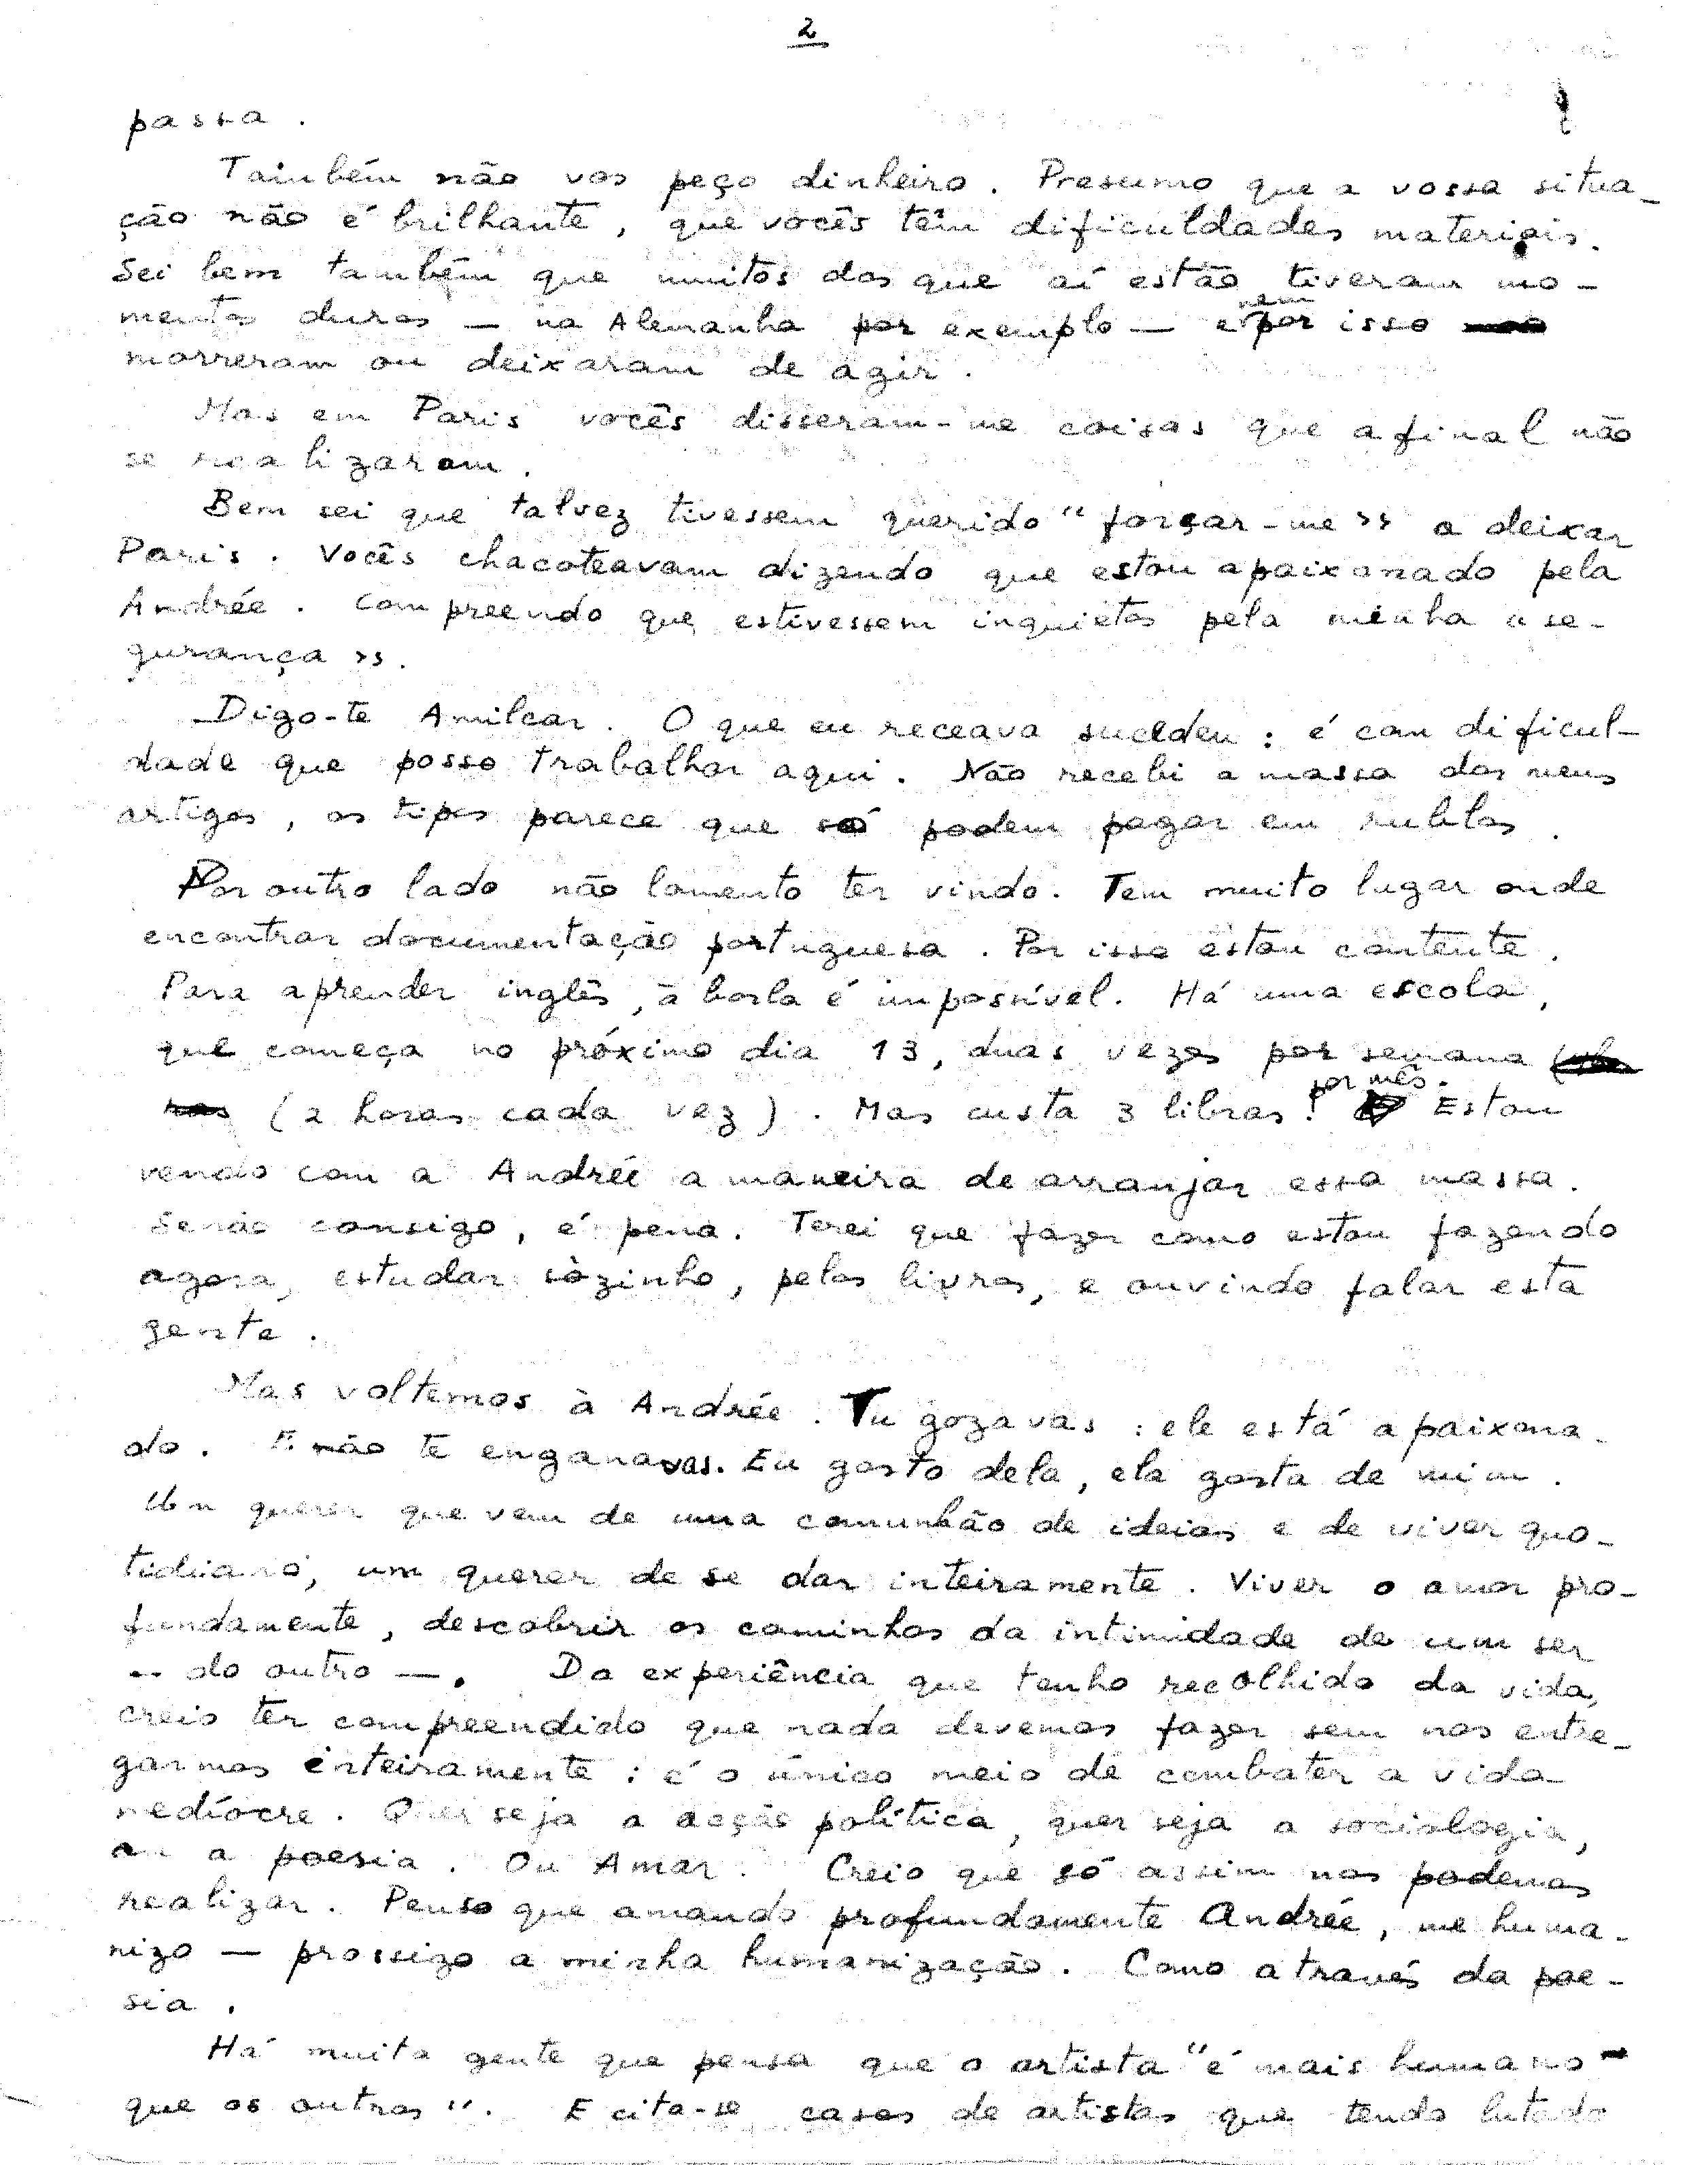 2
passa.
Também não vos peço dinheiro. Presumo que a vossa situa-
ção não é brilhante, que vocês têm dificuldades materiais.
Sei bem também que muitos dos que aí estão tiveram mo-
mentos duros — na Alemanha por exemplo — e nem por isso
morreram ou deixaram de agir.
Mas em Paris vocês disseram-me coisas que afinal não
se realizaram.
Bem sei que talvez tivessem querido "forçar-me" a deixar
Paris. Vocês chacoteavam dizendo que estou apaixonado pela
Andrée. Compreendo que estivessem inquietos pela minha "se-
gurança".
Digo-te Amilcar. O que eu receava sucedeu: é com dificul-
dade que posso trabalhar aqui. Não recebi a massa dos meus
artigos, os tipos parece que só podem pagar em rublos.
Por outro lado não lamento ter vindo. Tem muito lugar onde
encontrar documentação portuguesa. Por isso estou contente.
Para aprender inglês, à borla é impossível. Há uma escola,
que começa no próximo dia 13, duas vezes por semana
(2 horas cada vez). Mas custa 3 libras por mês! Estou
vendo com a Andrée a maneira de arranjar essa massa.
Se não consigo, é pena. Terei que fazer como estou fazendo
agora, estudar sòzinho, pelos livros, e ouvindo falar esta
gente.
Mas voltemos à Andrée. Tu gozavas: ele está apaixona-
do. E não te enganavas. Eu gosto dela, ela gosta de mim.
Um querer que vem de uma comunhão de ideias e de viver quo-
tidiano, um querer de se dar inteiramente. Viver o amor pro-
fundamente, descobrir os caminhos da intimidade de um ser
— do outro —. Da experiência que tenho recolhido da vida,
creio ter compreendido que nada devemos fazer sem nos entre-
garmos inteiramente: é o único meio de combater a vida
medíocre. Quer seja a acção política, quer seja a sociologia,
ou a poesia. Ou Amar. Creio que só assim nos podemos
realizar. Penso que amando profundamente Andrée, me huma-
nizo — prossigo a minha humanização. Como através da poe-
sia.
Há muita gente que pensa que o artista "é mais humano
que os outros". E cita-se casos de artistas que tendo lutado